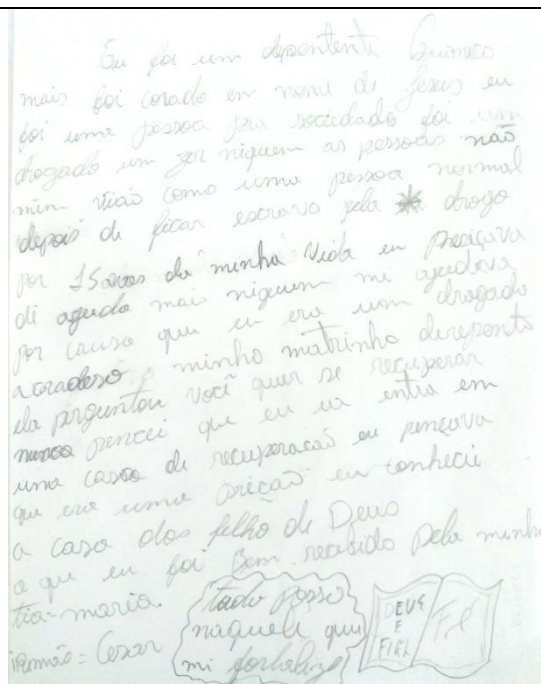 Eu foi um depontente Quimico
mais foi corado em nome de Jesus eu
foi uma pessoa pra sociedado foi um
drogado um zor niquem as pessoas não
min viao como uma pessoa normal
depois de ficar escravo pela drogo
por 15 anos da minha vida eu Preciçava
di aguda mais niguem me agudava
por causa que eu era um drogado
acradeso a minho matrinho dereponto
ela preguntou você quer se recuperar
nunca pencei que eu ia entra em
uma casoa de recuperacaõ eu pençava
que era uma prição eu conheci
a casa dos filho de Deus
a que eu foi Bem recebido pela minha
tia=maria.
irmmão=Cesar
tado posso
naquele que
mi fortaliza
DEUS
E
FIEL
Fé